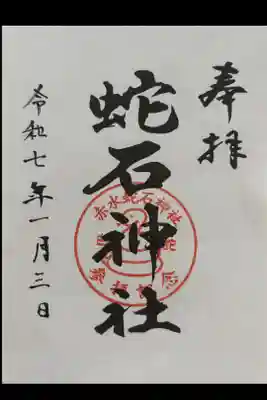 奉拝
蛇石神社
赤水蛇石神社
令和七年一月三日